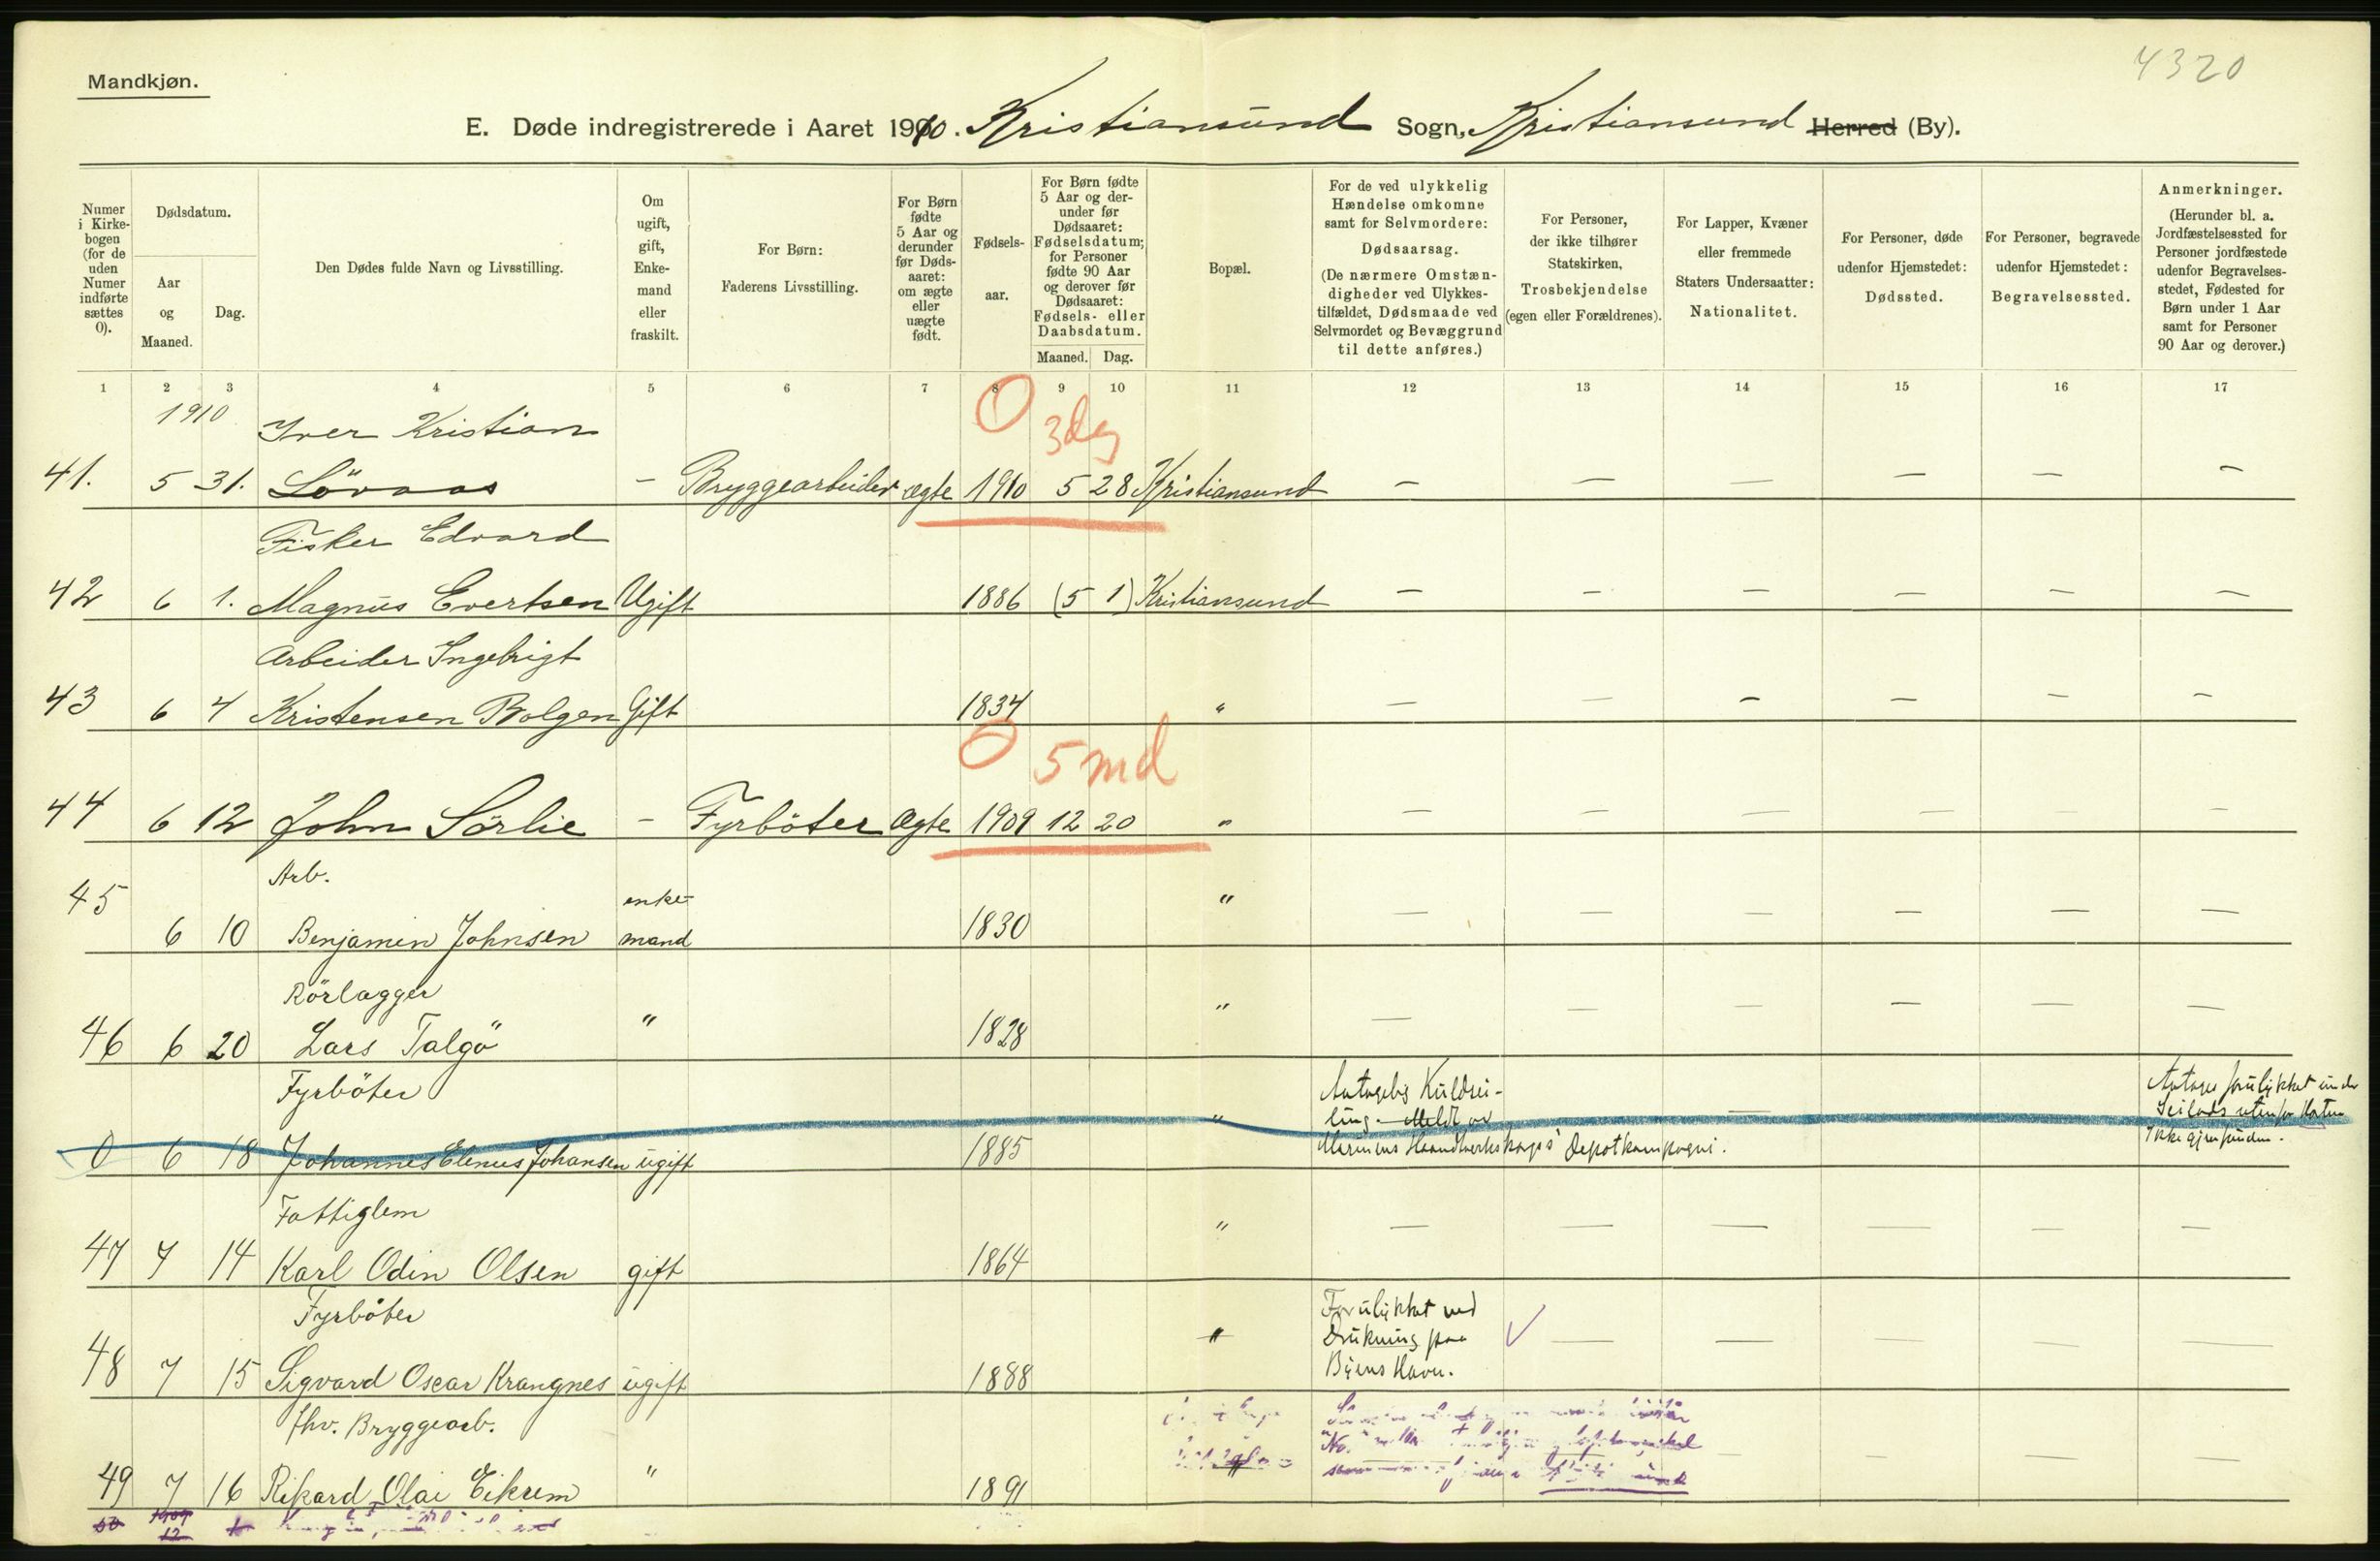 4320
Mandkjøn.
E. Døde indregistrerede i Aaret 1910. Kristiansund Sogn, Kristiansund Herred (By).
Numer i Kirkebogen (for de uden Numer indførte sættes 0).
Dødsdatum.
Aar og Maaned.
Dag.
Den Dødes fulde Navn og Livsstilling.
Om ugift, gift, Enkemand eller fraskilt.
For Børn: Faderens Livsstilling.
For Børn fødte 5 Aar og derunder før Dødsaaret: om ægte eller uægte født.
Fødselsaar.
For Børn fødte 5 Aar og derunder før Dødsaaret: Fødselsdatum; for Personer fødte 90 Aar og derover før Dødsaaret: Fødsels- eller Daabsdatum.
Maaned. Dag.
Bopæl.
For de ved ulykkelig Hændelse omkomne samt for Selvmordere: Dødsaarsag. (De nærmere Omstændigheder ved Ulykkestilfældet, Dødsmaade ved Selvmordet og Bevæggrund til dette anføres.)
For Personer, der ikke tilhører Statskirken, Trosbekjendelse (egen eller Forældrenes).
For Lapper, Kvæner eller fremmede Staters Undersaatter: Nationalitet.
For Personer, døde udenfor Hjemstedet: Dødssted.
For Personer, begravede udenfor Hjemstedet: Begravelsessted.
Anmerkninger. (Herunder bl. a. Jordfæstelsessted for Personer jordfæstede udenfor Begravelsesstedet, Fødested for Børn under 1 Aar samt for Personer 90 Aar og derover.)
1 2 3 4 5 6 7 8 9 10 11 12 13 14 15 16 17
1910 Iver Kristian 0 3dg
41. 5 31. Lövaas - Bryggearbeider ægte 1910 5 28 Kristiansund - - - - - -
Fisker Edvard
42 6 1. Magnus Evertsen Ugift 1886 (5 1) Kristiansund - - - - - -
Arbeider Ingebrigt
43 6 4 Kristensen Bolgen Gift 1834 " - - - - - -
0 5 md
44 6 12 John Sörlie - Fyrböter Ægte 1909 12 20 " - - - - - -
Arb.
45 enke-
6 10 Benjamin Johnsen mand 1830 " - - - - - -
Rörlægger
46 6 20 Lars Talgö " 1828 " - - - - - -
Fyrböter Antagelig Kuldsei- Antages forulykket under
" ling. Meldt av - Seilads utenfor Horten
0 6 18 Johannes Elenus Johansen ugift 1885 Marinens Haandverkskorps' Depotkompagni. Ikke gjenfunden.
Fattiglem
47 7 14 Karl Odin Olsen gift 1864 " - - - - - -
Fyrböter Forulykket ved
" Drukning paa - - - - -
48 7 15 Sigvard Oscar Krangnes ugift 1888 Byens Havn.
fhv. Bryggearb.
No.
49 7 16 Rikard Olai Eikrem " 1891 " - - - -
50 1909
12